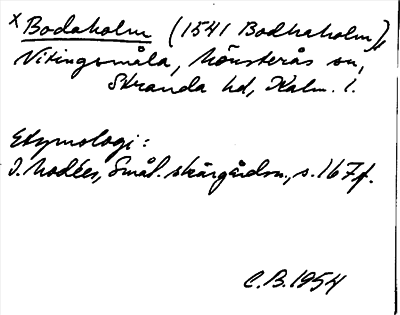 x Bodaholm (1541 Bodhaholm),
Vitingsmåla, Mönsterås sn,
Stranda hd, Kalm. l.
Etymologi:
I. Modéer, Smål. skärgårdsn., s. 167 f.
C.B. 1954